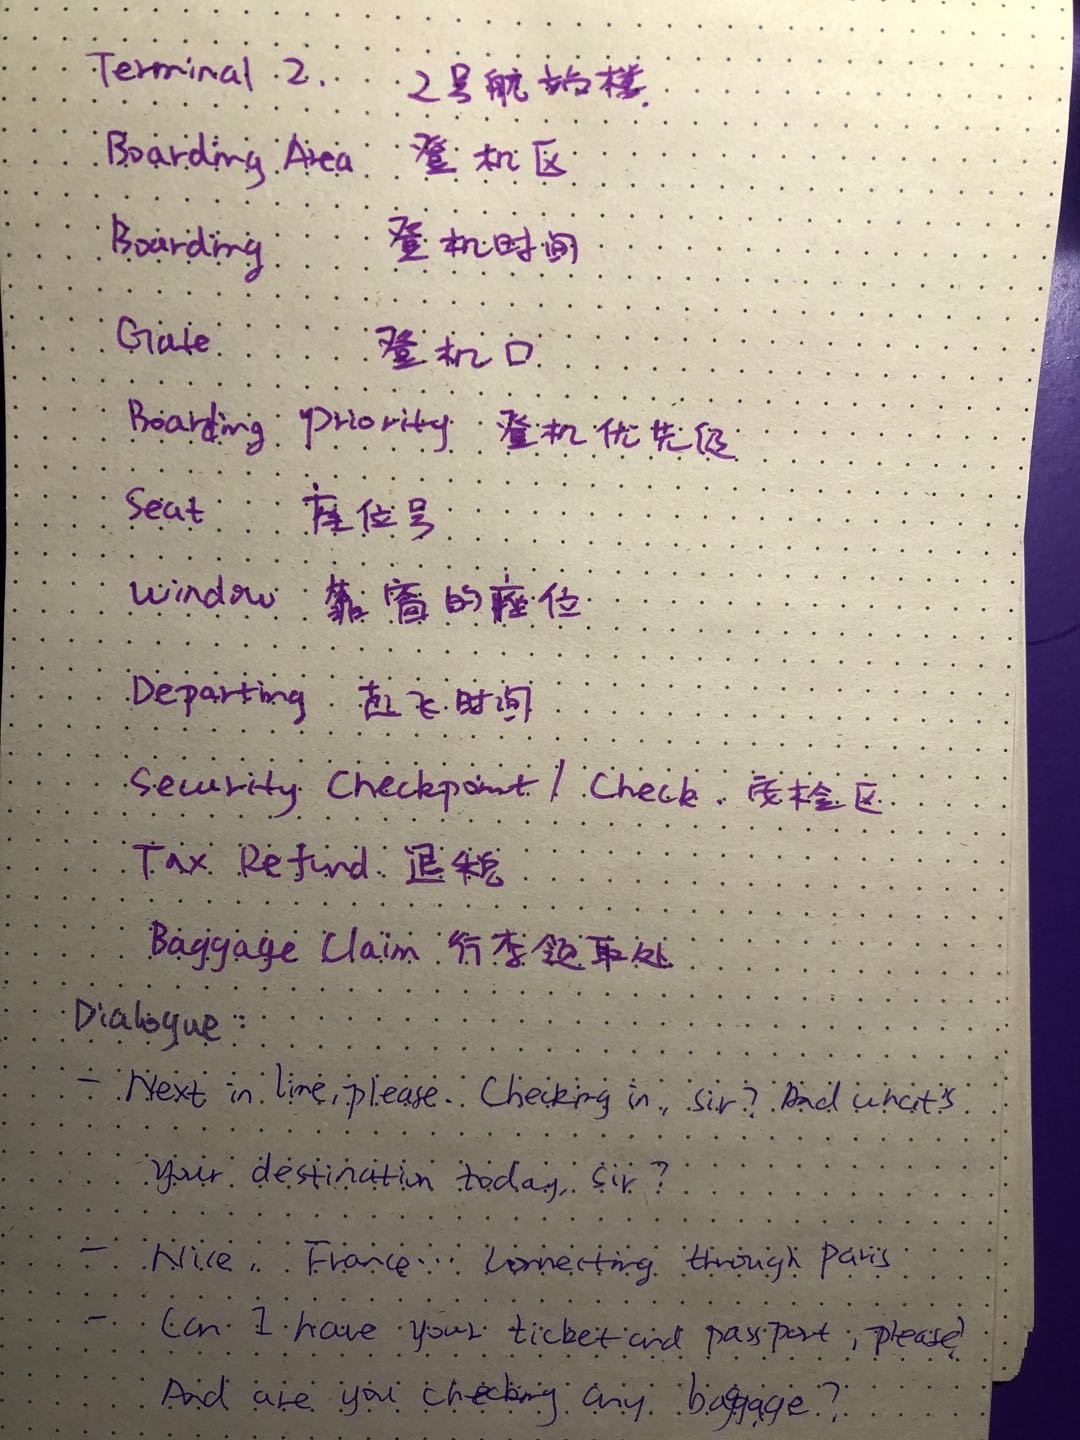 Terminal 2. 2号航站楼.
Boarding Area 登机区
Boarding 登机时间
Gate 登机口
Boarding priority 登机优先级
Seat 座位号
window 靠窗的座位
Departing 起飞时间
Security Checkpoint / Check. 安检区
Tax Refund. 退税
Baggage Claim 行李领取处
Dialogue:
- Next in line, please. Checking in, sir? And what's
your destination today, sir?
- Nice, France... connecting through paris
- Can I have your ticket and passport, please?
And are you checking any baggage?